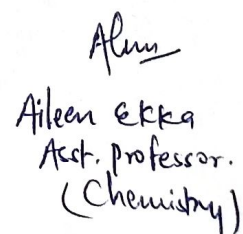 Aileen Ekka
Asst. professor.
(Chemistry)